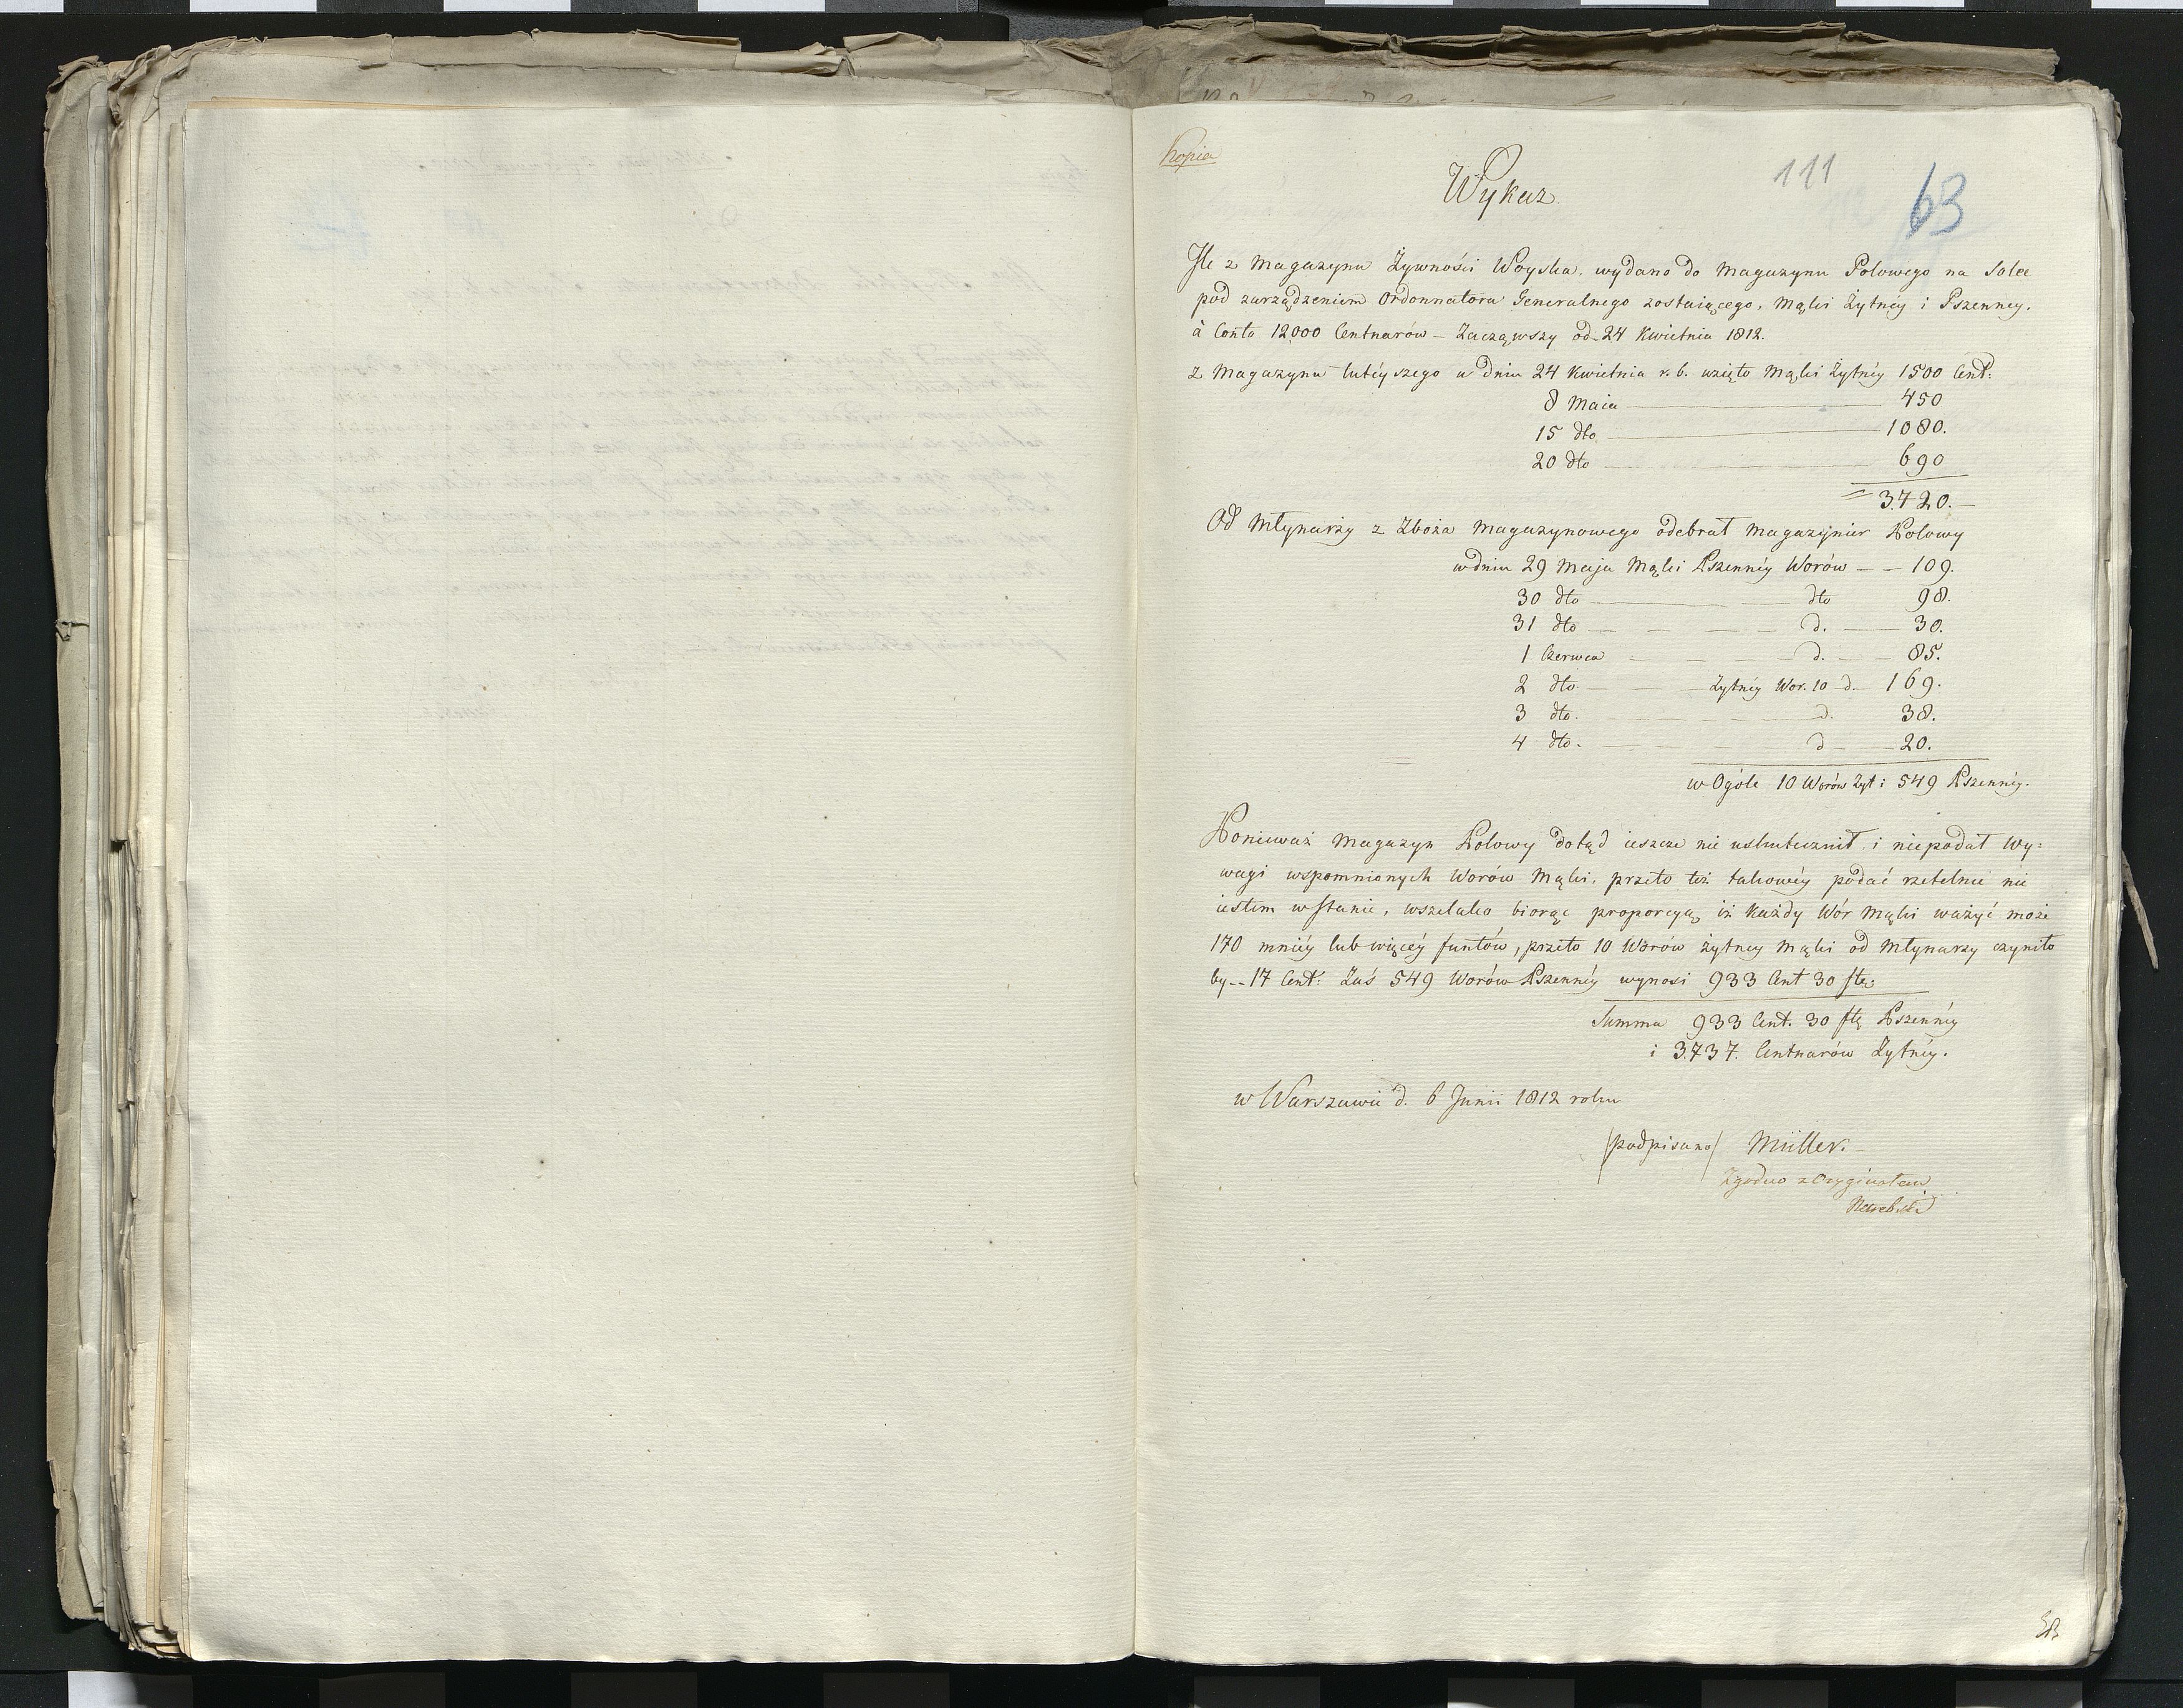 Kopia
111
63
Wykaz.
Jle z Magazynu Żywności Woyska, wydano do Magazynu Polowego na Solcu
pod zarządzeniem Ordonnatora Generalnego zostaiącego, Mąki Żytnéy i Pszenney.
à Conto 12,000 Centnarów – Zacząwszy od 24 Kwietnia 1812.
z Magazynu tutéyszego w dniu 24 Kwietnia r. b. wzięto Mąki Żytnéy 1500 Cent:
8 Maia — 450
15 dto — 1080.
20 dto — 690
= 3,720. —
Od Młynarzy z Zboża Magazynowego odebrał Magazynier Polowy
w dniu 29 Maja Mąki Pszennéy Worów — — 109.
30 dto — dto 98.
31 dto — d. — 30.
1 Czerwca — d. — 85.
2 dto — Żytnéy Wor. 10 – d. — 169.
3 dto. — d. 38.
4 dto. — d — 20.
w Ogóle 10 Worów Żyt: 549 Pszennéy.
Ponieważ Magazyn Polowy dotąd ieszcze nie uskutecznił i niepodał Wy=
wagi wspomnionych Worów Mąki, przeto też takowéy podać rzetelnie nie
iestem w stanie, wszelako biorąc proporcyą iż każdy Wór Mąki ważyć może
170 mniéy lub więcéy funtów, przeto 10 Worów żytney Mąki od Młynarzy czyniło
by -- 17 Cent: Zaś 549 Worów Pszennéy wynosi 933 Cent 30 ftt:
Summa 933 Cent. 30 ftt Pszennéy
i 3,737. Centnarów Żytnéy.
w Warszawie d. 6 Junii 1812 roku
/podpisano/ Müller. –
Zgodno z Oryginałem